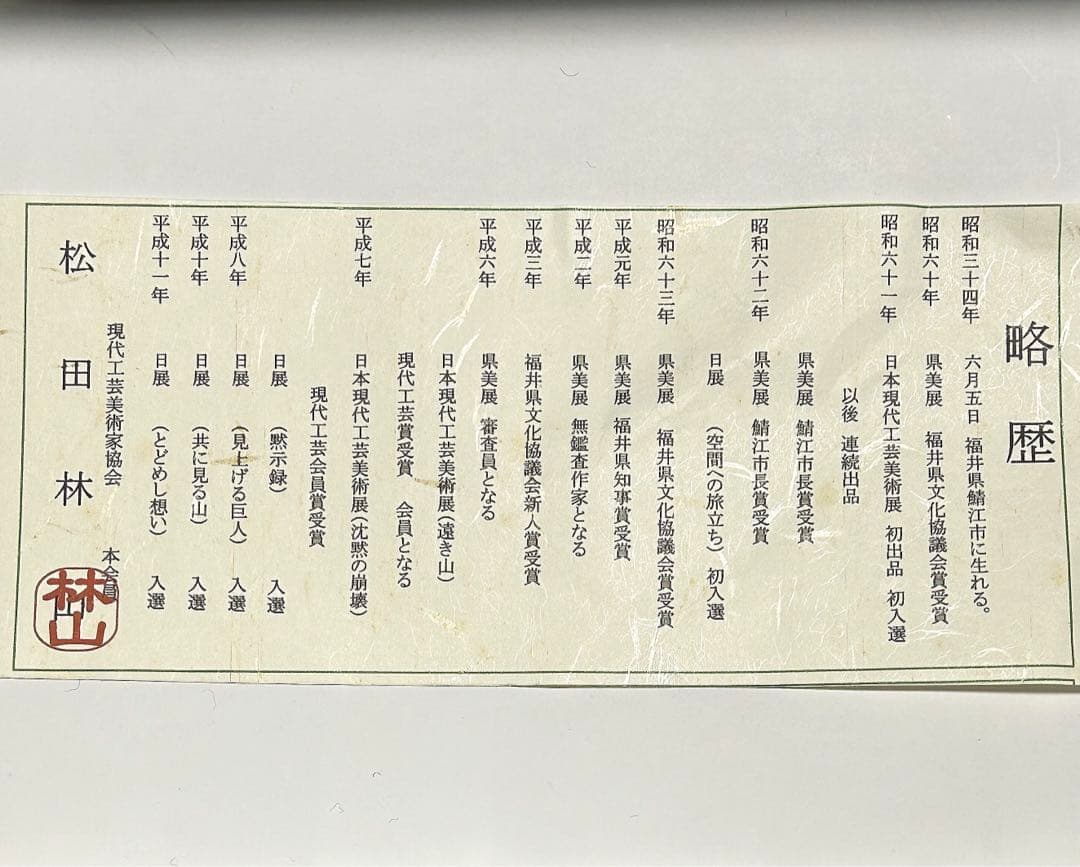 略歴
昭和三十四年 六月五日 福井県鯖江市に生れる。
昭和六十年 県美展 福井県文化協議会賞受賞
昭和六十一年 日本現代工芸美術展 初出品 初入選
以後 連続出品
県美展 鯖江市長賞受賞
昭和六十二年 県美展 鯖江市長賞受賞
日展 (空間への旅立ち) 初入選
昭和六十三年 県美展 福井県文化協議会賞受賞
平成元年 県美展 福井県知事賞受賞
平成二年 県美展 無鑑査作家となる
平成三年 福井県文化協議会新人賞受賞
平成六年 県美展 審査員となる
日本現代工芸美術展(遠き山)
現代工芸賞受賞 会員となる
平成七年 日本現代工芸美術展(沈黙の崩壊)
現代工芸会員賞受賞
日展 (黙示録) 入選
平成八年 日展 (見上げる巨人) 入選
平成十年 日展 (共に見る山) 入選
平成十一年 日展 (とどめし想い) 入選
現代工芸美術家協会 本会員
松田林山
林山